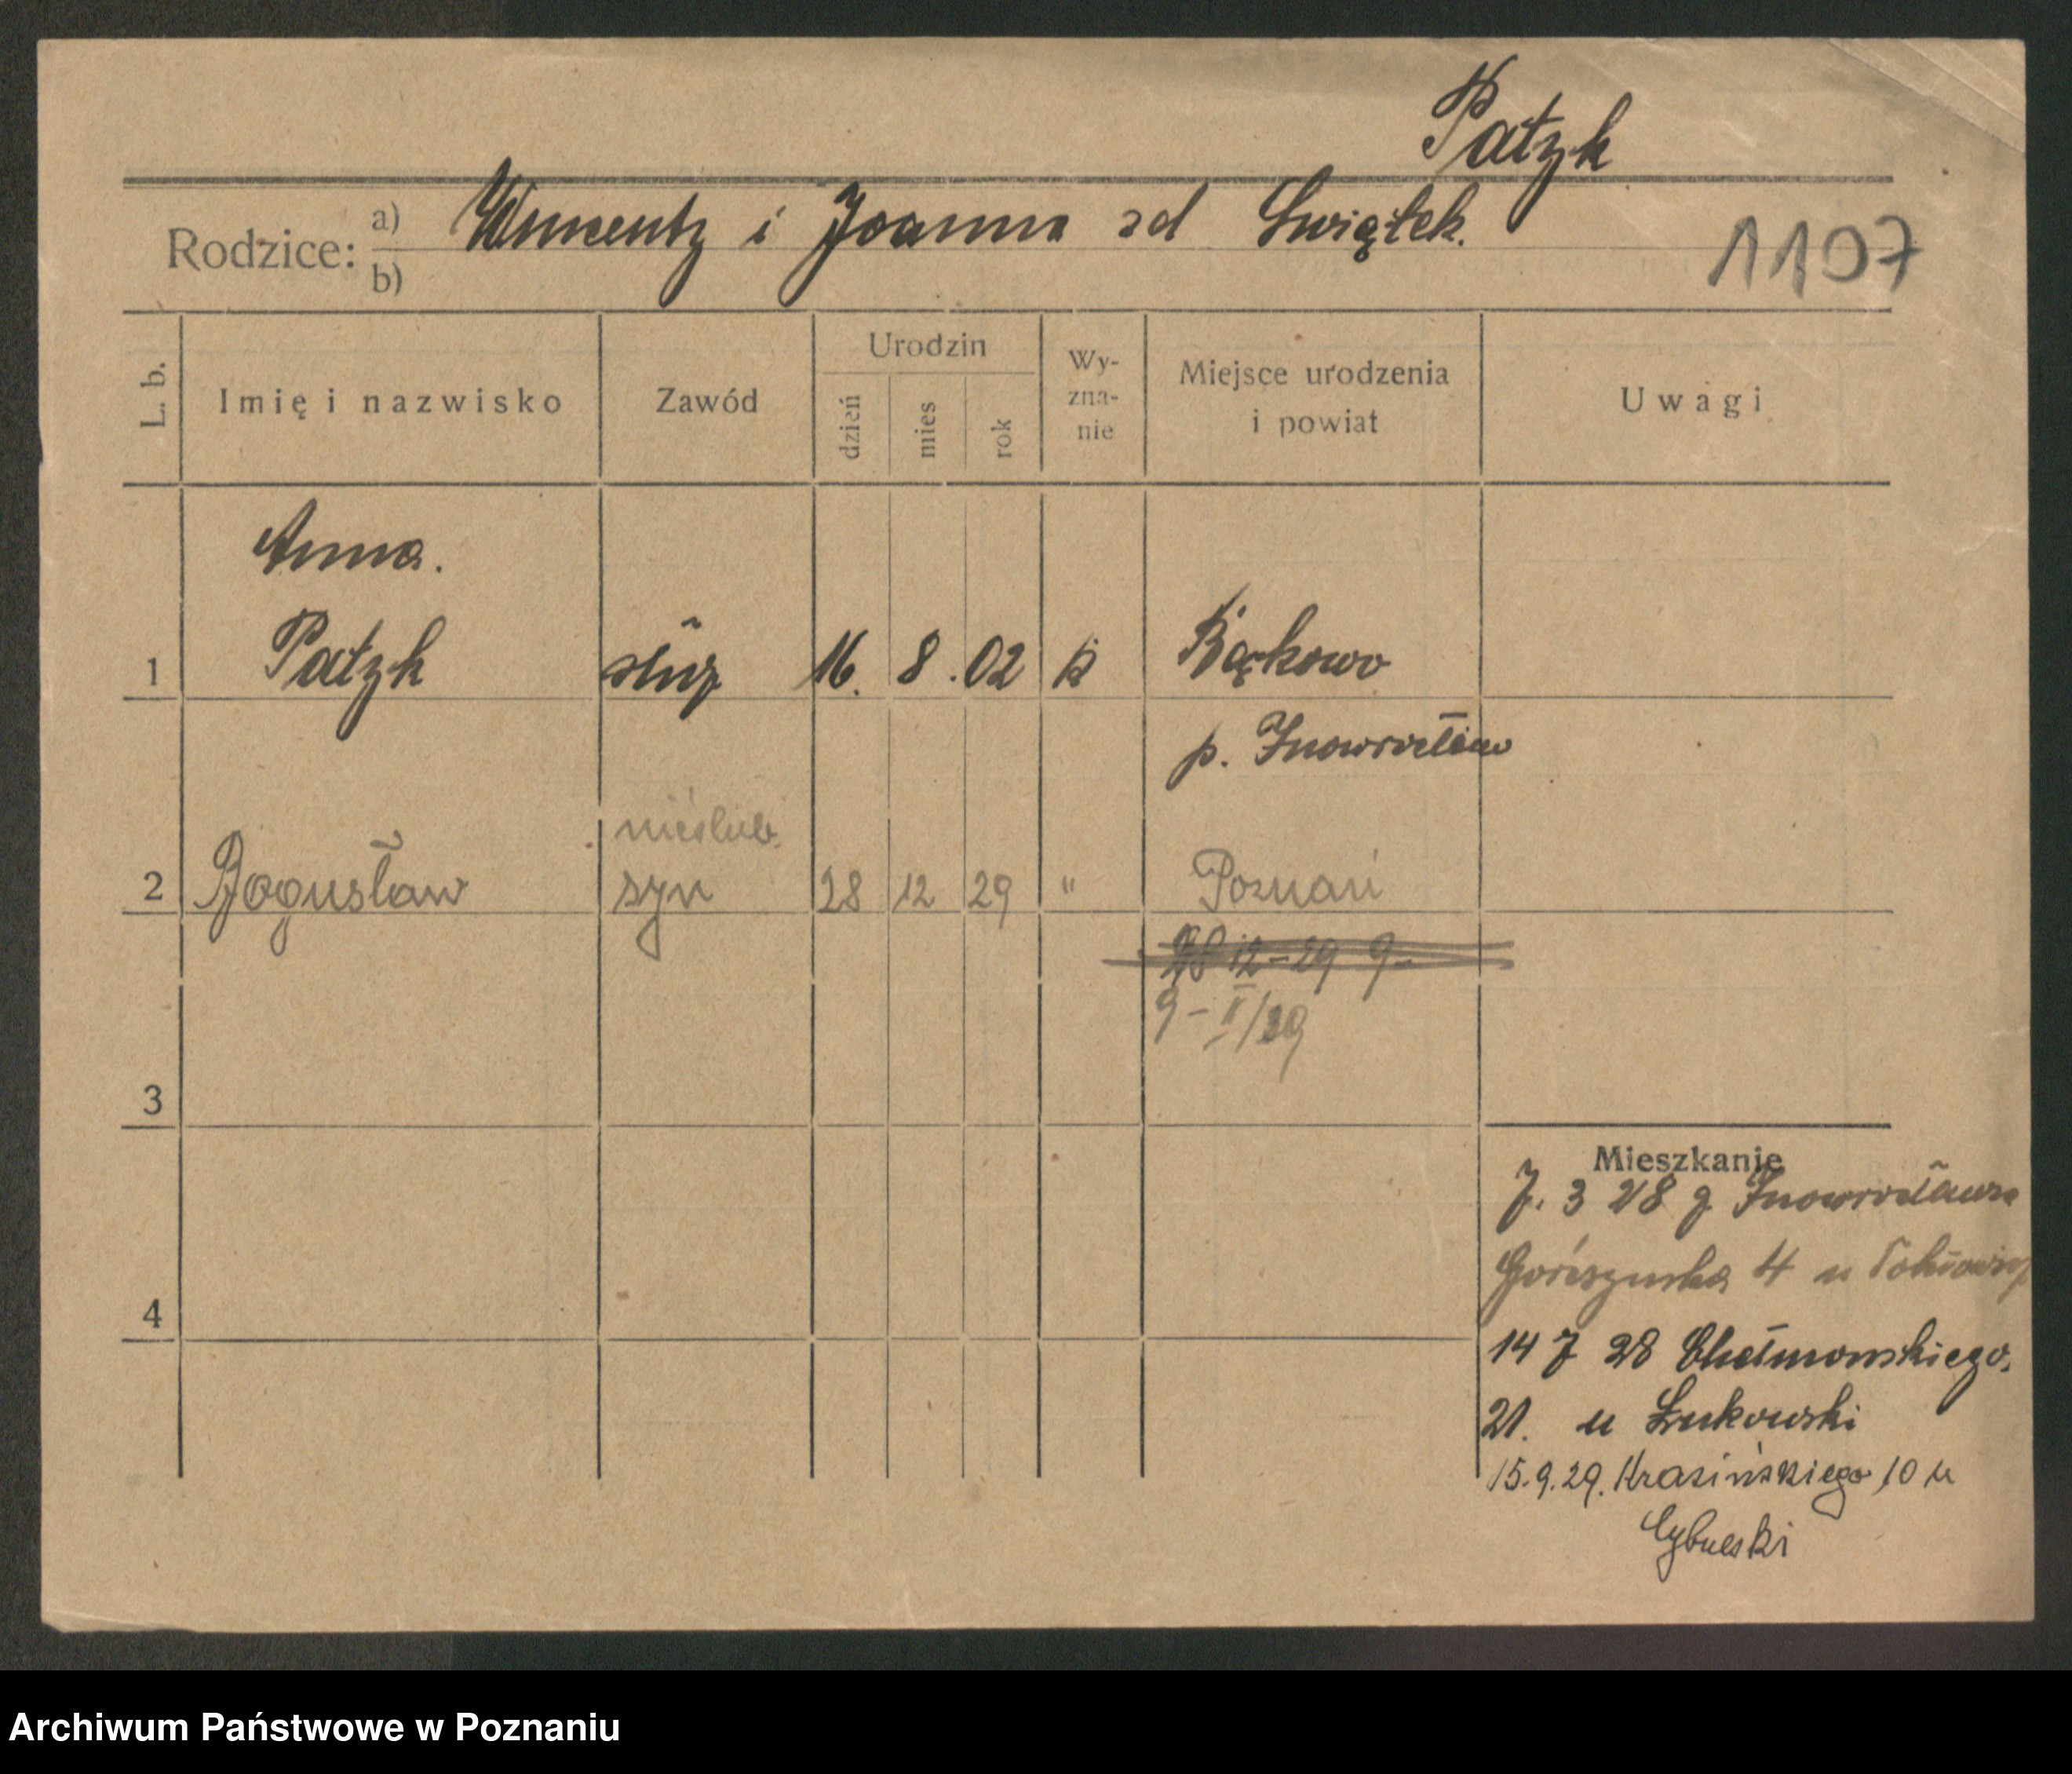 Patzk
Rodzice: a) Wincenty i Joanna zd Swiątek.
b)
1107
L. b. Imię i nazwisko Zawód Urodzin dzień mies rok Wy-zna-nie Miejsce urodzenia i powiat Uwagi
Anna.
1 Patzk służ 16. 8. 02 k Bąkowo
p. Inowrocław
nieślub.
2 Bogusław syn 28 12 29 " Poznań
28 12-29 9-
9-II/29
3
Mieszkanie
7. 3 28 z Inowrocławia
4 u
4
14 7 28 Chełmonskiego.
21. u Łukowski
15.9.29. Krasińskiego 10 u
Cybulski
Archiwum Państwowe w Poznaniu